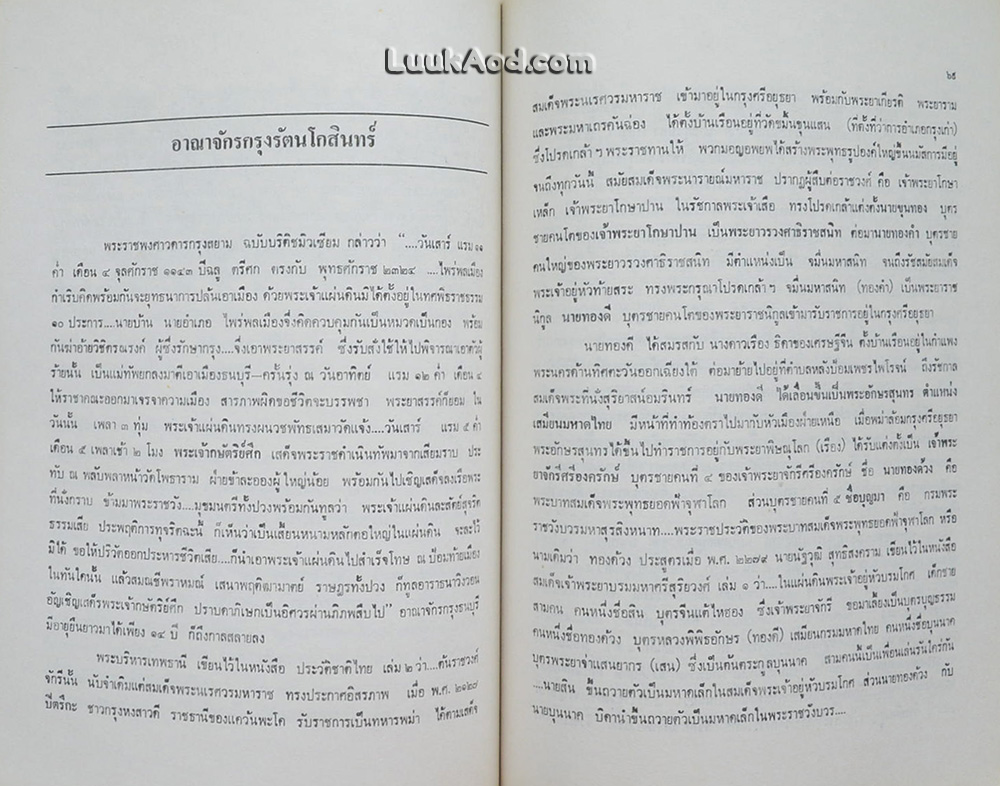 LuukAod.com
อาณาจักรกรุงรัตนโกสินทร์
พระราชพงศาวดารกรุงสยาม ฉบับบริติชมิวเซียม กล่าวว่า "....วันเสาร์ แรม ๑๑
ค่ำ เดือน ๔ จุลศักราช ๑๑๔๓ ปีฉลู ตรีศก ตรงกับ พุทธศักราช ๒๓๒๔ ....ไพร่พลเมือง
กำเริบคิดพร้อมกันจะยุทธนาการปล้นเอาเมือง ด้วยพระเจ้าแผ่นดินมิได้ตั้งอยู่ในทศพิธราชธรรม
๑๐ ประการ....นายบ้าน นายอำเภอ ไพร่พลเมืองจึ่งคิดควบคุมกันเป็นหมวดเป็นกอง พร้อม
กันฆ่าอ้ายวิชิตรณรงค์ ผู้ซึ่งรักษากรุง....จึ่งเอาพระยาสรรค์ ซึ่งรับสั่งใช้ให้ไปพิจารณาเอาตัวผู้
ร้ายนั้น เป็นแม่ทัพยกลงมาตีเอาเมืองธนบุรี—ครั้นรุ่ง ณ วันอาทิตย์ แรม ๑๒ ค่ำ เดือน ๔
ให้ราชาคณะออกมาเจรจาความเมือง สารภาพผิดขอชีวิตจะบรรพชา พระยาสรรค์ก็ยอม ใน
วันนั้น เพลา ๓ ทุ่ม พระเจ้าแผ่นดินทรงผนวชพัทธเสมาวัดแจ้ง....วันเสาร์ แรม ๕ ค่ำ
เดือน ๕ เพลาเช้า ๒ โมง พระเจ้ากษัตริย์ศึก เสด็จพระราชดำเนินทัพมาจากเสียมราบ ประ
ทับ ณ พลับพลาหน้าวัดโพธาราม ฝ่ายข้าละอองผู้ใหญ่น้อย พร้อมกันไปเชิญเสด็จลงเรือพระ
ที่นั่งกราบ ข้ามมาพระราชวัง....มุขมนตรีทั้งปวงพร้อมกันทูลว่า พระเจ้าแผ่นดินละสัตย์สุจริต
ธรรมเสีย ประพฤติการทุจริตฉะนี้ ก็เห็นว่าเป็นเสี้ยนหนามหลักตอใหญ่ในแผ่นดิน จะละไว้
มิได้ ขอให้ปริวัตออกประหารชีวิตเสีย....ก็นำเอาพระเจ้าแผ่นดินไปสำเร็จโทษ ณ ป้อมท้ายเมือง
ในทันใดนั้น แล้วสมณชีพราหมณ์ เสนาพฤฒิฒามาตย์ ราษฎรทั้งปวง ก็ทูลอาราธนาวิงวอน
อัญเชิญเสด็จพระเจ้ากษัตริย์ศึก ปราบดาภิเษกเป็นอิศวรผ่านภิภพสืบไป" อาณาจักรกรุงธนบุรี
มีอายุยืนยาวมาได้เพียง ๑๔ ปี ก็ถึงกาลสลายลง
พระบริหารเทพธานี เขียนไว้ในหนังสือ ประวัติชาติไทย เล่ม ๒ ว่า....ต้นราชวงศ์
จักรีนั้น นับจำเดิมแต่สมเด็จพระนเรศวรมหาราช ทรงประกาศอิสรภาพ เมื่อ พ.ศ. ๒๑๒๗
ปีตรีกะ ชาวกรุงหงสาวดี ราชธานีของแคว้นพะโค รับราชการเป็นทหารพม่า ได้ตามเสด็จ
๒๕
สมเด็จพระนเรศวรมหาราช เข้ามาอยู่ในกรุงศรีอยุธยา พร้อมกับพระยาเกียรติ พระยาราม
และพระมหาเถรคันฉ่อง ได้ตั้งบ้านเรือนอยู่ที่วัดขมิ้นขุนแสน (ที่ตั้งที่ว่าการอำเภอกรุงเก่า)
ซึ่งโปรดเกล้า ฯ พระราชทานให้ พวกมอญอพยพได้สร้างพระพุทธรูปองค์ใหญ่ขึ้นนมัสการมีอยู่
จนถึงทุกวันนี้ สมัยสมเด็จพระนารายณ์มหาราช ปรากฏผู้สืบต่อราชวงศ์ คือ เจ้าพระยาโกษา
เหล็ก เจ้าพระยาโกษาปาน ในรัชกาลพระเจ้าเสือ ทรงโปรดเกล้าแต่งตั้งนายขุนทอง บุตร
ชายคนโตของเจ้าพระยาโกษาปาน เป็นพระยาวรวงศาธิราชสนิท ต่อมานายทองคำ บุตรชาย
คนใหญ่ของพระยาวรวงศาธิราชสนิท มีตำแหน่งเป็น จมื่นมหาสนิท จนถึงรัชสมัยสมเด็จ
พระเจ้าอยู่หัวท้ายสระ ทรงพระกรุณาโปรดเกล้า ฯ จมื่นมหาสนิท (ทองคำ) เป็นพระยาราช
นิกูล นายทองดี บุตรชายคนโตของพระยาราชนิกูลเข้ามารับราชการอยู่ในกรุงศรีอยุธยา
นายทองดี ได้สมรสกับ นางดาวเรือง ธิดาของเศรษฐีจีน ตั้งบ้านเรือนอยู่ในกำแพง
พระนครด้านทิศตะวันออกเฉียงใต้ ต่อมาย้ายไปอยู่ที่ตำบลหลังป้อมเพชรไพโรจน์ ถึงรัชกาล
สมเด็จพระที่นั่งสุริยาสน์อมรินทร์ นายทองดี ได้เลื่อนขึ้นเป็นพระอักษรสุนทร ตำแหน่ง
เสมียนมหาดไทย มีหน้าที่ทำท้องตราไปมากับหัวเมืองฝ่ายเหนือ เมื่อพม่าล้อมกรุงศรีอยุธยา
พระอักษรสุนทรได้ขึ้นไปทำราชการอยู่กับพระยาพิษณุโลก (เรือง) ได้รับแต่งตั้งเป็น เจ้าพระ
ยาจักรีศรีองครักษ์ บุตรชายคนที่ ๔ ของเจ้าพระยาจักรีศรีองครักษ์ ชื่อ นายทองด้วง คือ
พระบาทสมเด็จพระพุทธยอดฟ้าจุฬาโลก ส่วนบุตรชายคนที่ ๕ ชื่อบุญมา คือ กรมพระ
ราชวังบวรมหาสุรสิงหนาท....พระราชประวัติของพระบาทสมเด็จพระพุทธยอดฟ้าจุฬาโลก หรือ
นามเดิมว่า ทองด้วง ประสูตรเมื่อ พ.ศ. ๒๒๗๙ นายนัฐวุฒิ สุทธิสงคราม เขียนไว้ในหนังสือ
สมเด็จเจ้าพระยาบรมมหาศรีสุริยวงศ์ เล่ม ๑ ว่า....ในแผ่นดินพระเจ้าอยู่หัวบรมโกศ เด็กชาย
สามคน คนหนึ่งชื่อสิน บุตรจีนแต้ไหฮอง ซึ่งเจ้าพระยาจักรี ขอมาเลี้ยงเป็นบุตรบุญธรรม
คนหนึ่งชื่อทองด้วง บุตรหลวงพิพิธอักษร (ทองดี) เสมียนกรมมหาดไทย คนหนึ่งชื่อบุนนาค
บุตรพระยาจ่าแสนยากร (เสน) ซึ่งเป็นต้นตระกูลบุนนาค สามคนนี้เป็นเพื่อนเล่นรักใคร่กัน
....นายสิน ขึ้นถวายตัวเป็นมหาดเล็กในสมเด็จพระเจ้าอยู่หัวบรมโกศ ส่วนนายทองด้วง กับ
นายบุนนาค บิดานำขึ้นถวายตัวเป็นมหาดเล็กในพระราชวังบวร....